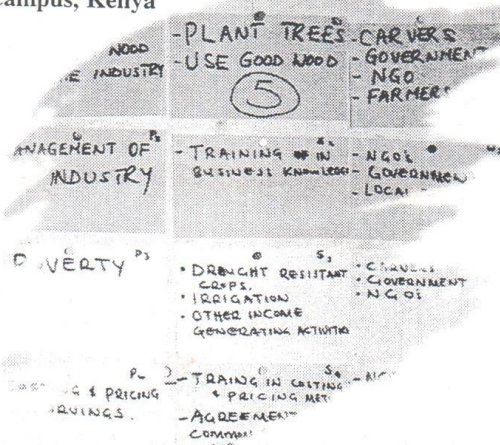 ampus, Kenya
NOOD
E INDUSTRY
- PLANT TREES
- USE GOOD WOOD
5
- CARVERS
- GOVERNMENT
- NGO
- FARMERS
ANAGEMENT OF
INDUSTRY
P2
- TRAINING IN
BUSINESS KNOWLEDG
S2
- NGO's
- GOVERNMEN
- LOCAL
VERTY P3
S3
• DROUGHT RESISTANT
CROPS.
• IRRIGATION
• OTHER INCOME
GENERATING ACTIVITIE
• CARVERS
• GOVERNMENT
• NGO's
G & PRICING
RVINGS.
- TRAING IN COSTING
& PRICING MET
S4
- AGREEMENT
COMMON